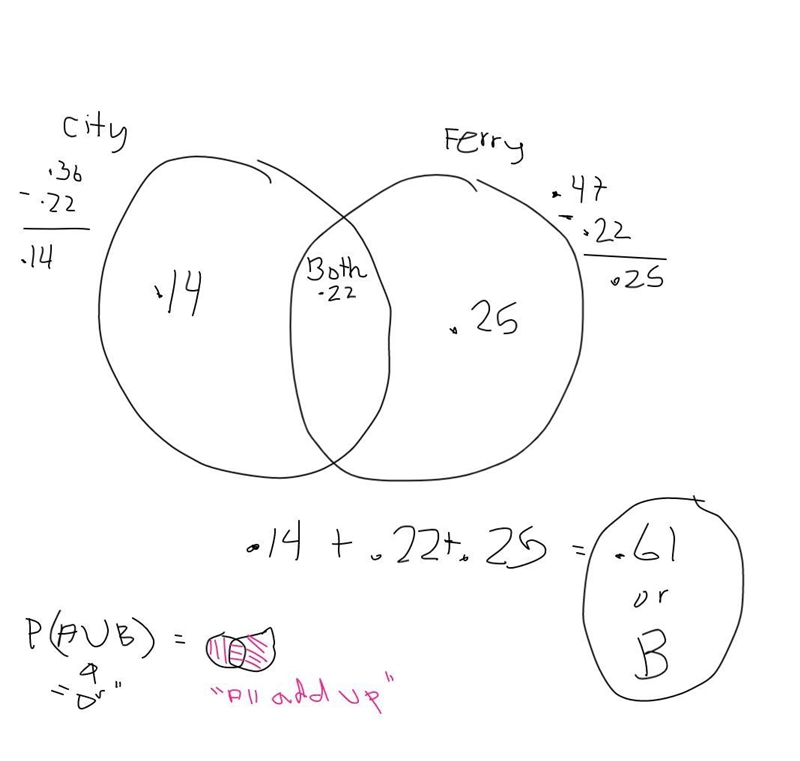 City
.36
- .22
.14
Ferry
.47
- .22
.25
Both
.22
.14
.25
.14 + .22+.25 = .61
or
B
P(A∪B) =
= "or"
"All add up"